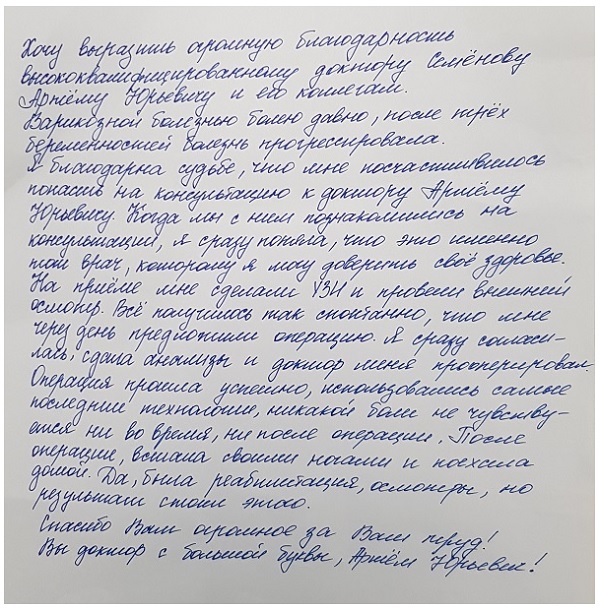 Хочу выразить огромную благодарность
высококвалифицированному доктору Семёнову
Артёму Юрьевичу и его коллегам.
Варикозной болезнью болею давно, после трёх
беременностей болезнь прогрессировала.
Я благодарна судьбе, что мне посчастливилось
попасть на консультацию к доктору Артёму
Юрьевичу. Когда мы с ним познакомились на
консультации, я сразу поняла, что это именно
тот врач, которому я могу доверить своё здоровье.
На приёме мне сделали УЗИ и провели внешний
осмотр. Всё получилось так спонтанно, что мне
через день предложили операцию. Я сразу согласи-
лась, сдала анализы и доктор меня прооперировал.
Операция прошла успешно, использовались самые
последние технологие, никакой боли не чувству-
ется ни во время, ни после операции. После
операции, встала своими ногами и поехала
домой. Да, была реабилитация, осмотры, но
результат стоит этого.
Спасибо Вам огромное за Ваш труд!
Вы доктор с большой буквы, Артём Юрьевич!